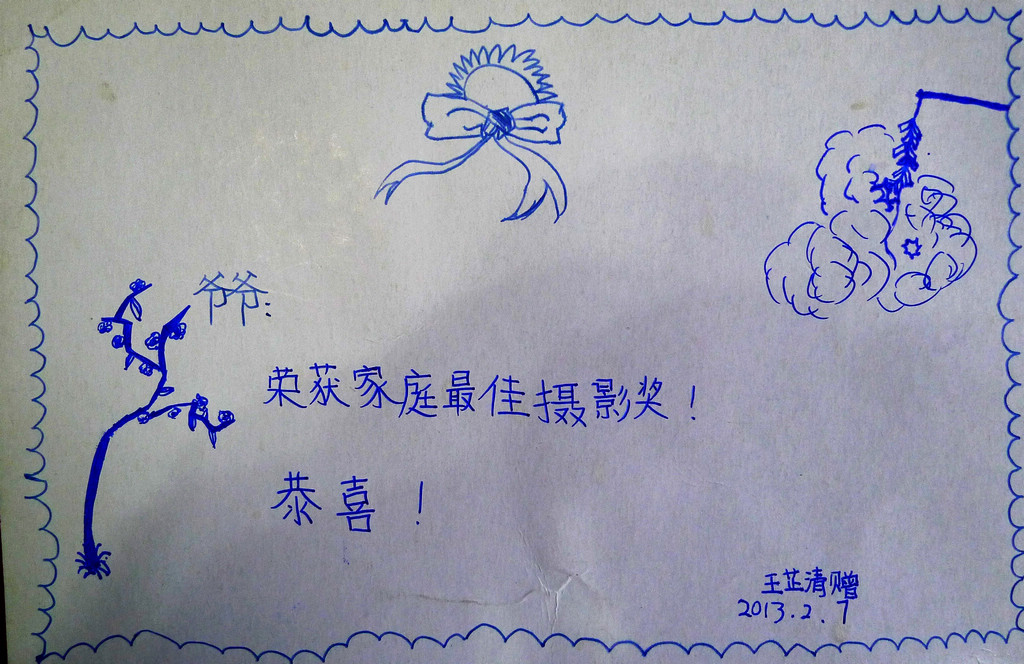 爷爷:
荣获家庭最佳摄影奖!
恭喜!
王芷清赠
2013.2.7